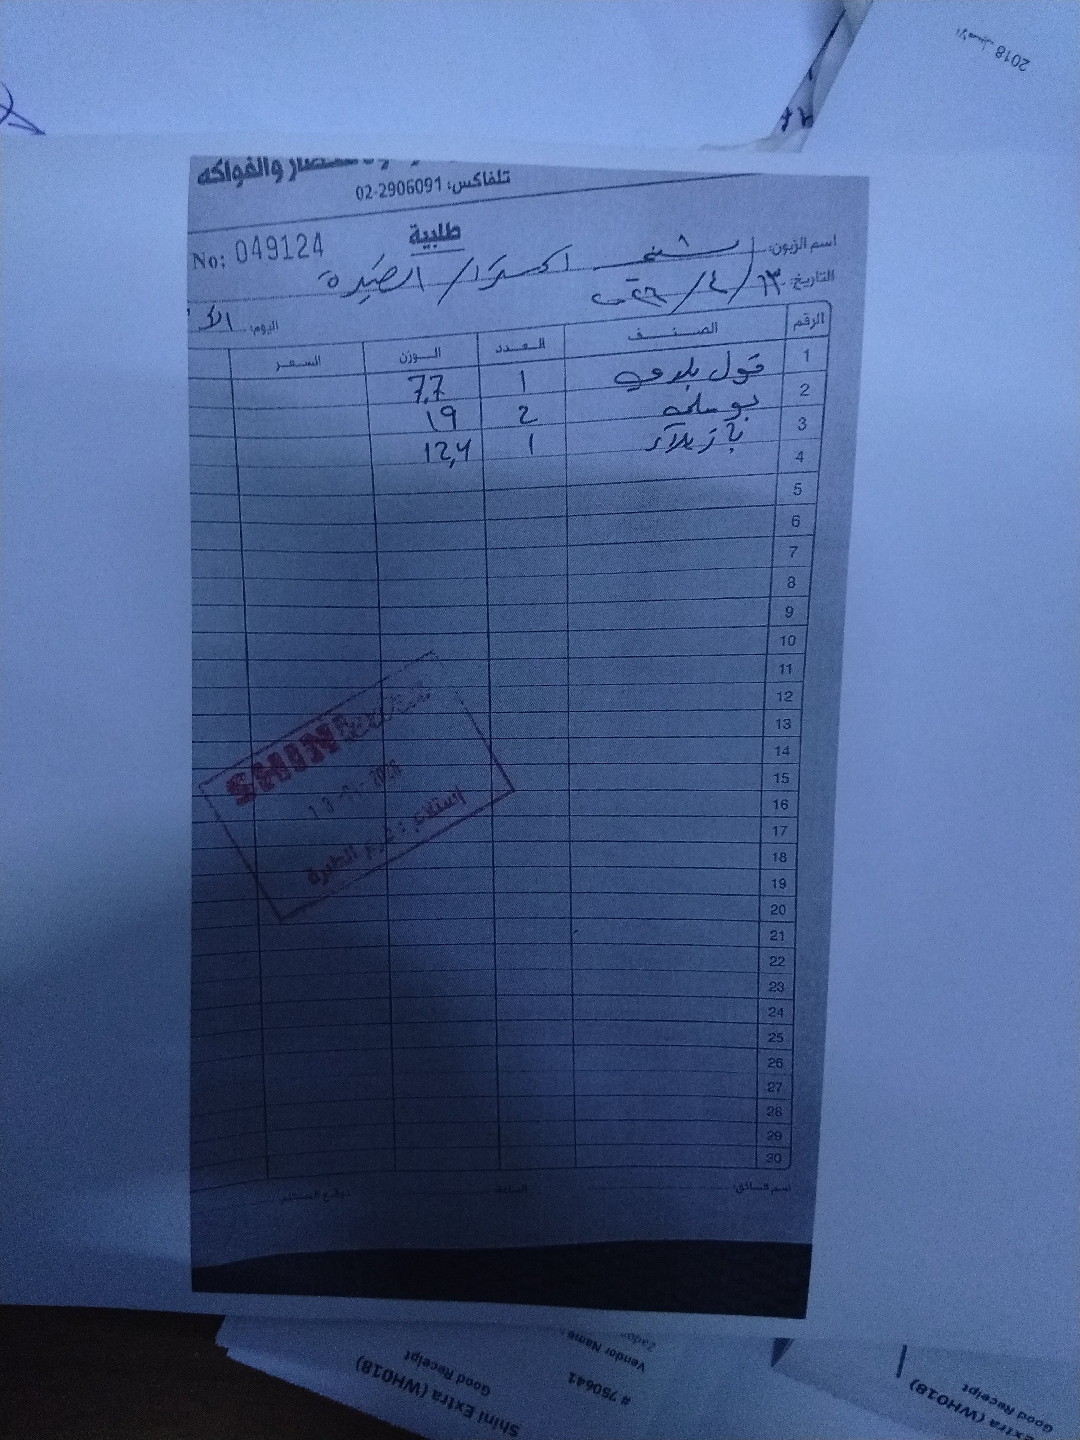 الأصيل 2018
والفواكه
تلفاكس: 02-2906091
طلبية
No: 049124
اسم الزبون: شني اكسترا/ الطيرة
التاريخ: ١٣/٤/
اليوم:
الرقم الصنف العدد الوزن السعر
1 فول بلدي 1 7,7
2 بوملي 2 19
3 1 12,4
4
5
6
7
8
9
10
11
12
13
14
15
16
17
18
19
20
21
22
23
24
25
26
27
28
29
30
SHINI
استلام: فرع الطيرة
اسم السائق: الساعة: توقيع المستلم
Shini Extra (WH018)
Good Receipt
# 750641
Vendor Name
Extra (WH018)
Good Receipt